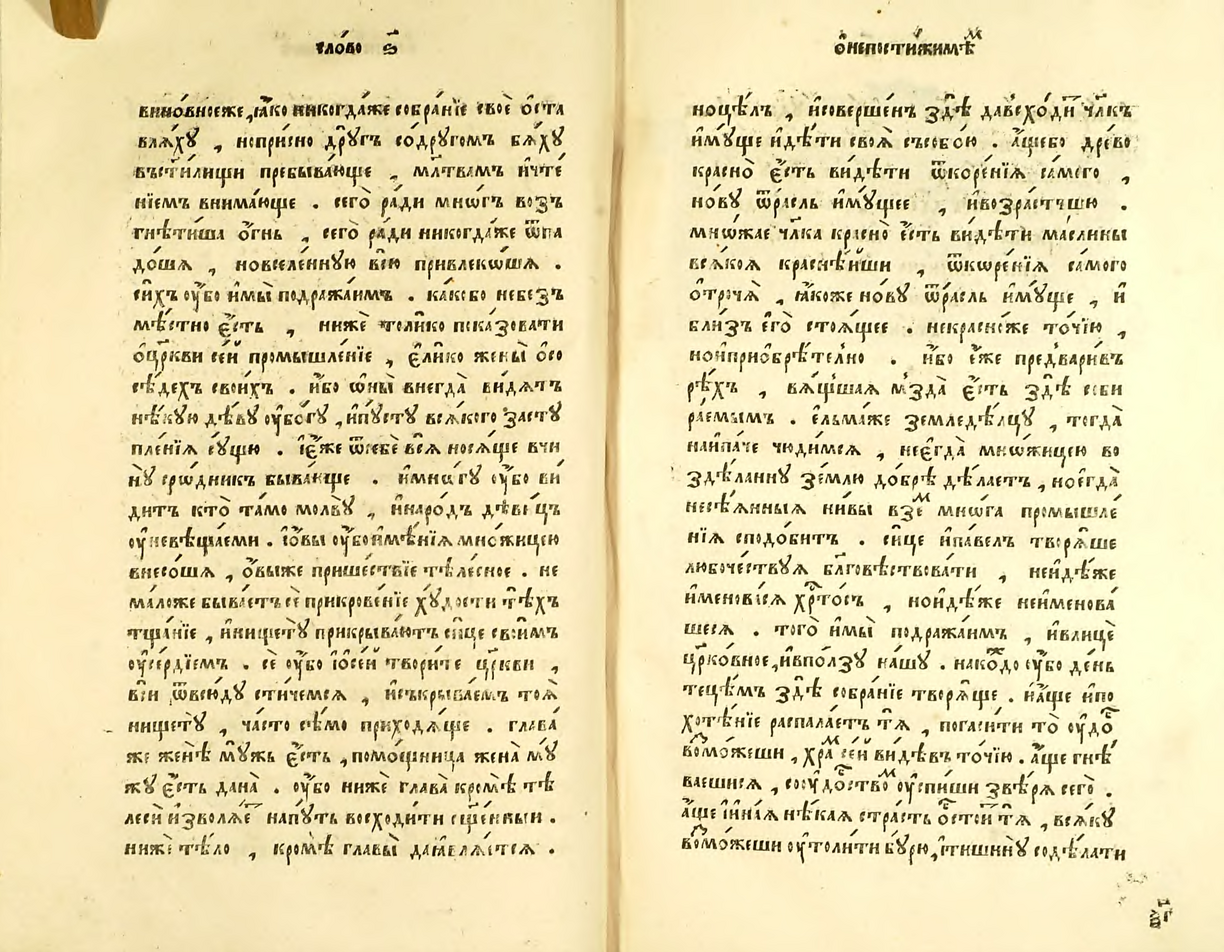 сло́во ѕ҃
вино́вноеже, ꙗ҆́ко никогда́же собра́нїе своѐ ѻ҆ста
влѧ́хꙋ , непри́сно дрꙋ́гъ содрꙋ́гомъ бѧ́хꙋ
въст҃и́лищи пребыва́юще , мл҃твамъ и҆чте́
нїемъ внима́юще . сего̀ ра́ди мнѡ́гъ возъ
гнѣти́ша ѻ҆́гнь , сего̀ ра́ди никогда́же ѿпа
до́шѧ , новселе́ннꙋю всю̀ привлеко́шѧ .
си́хъ ᲂу҆́бо и҆мы̀ подража́имъ . ка́кобо небезъ
мѣ́стно є҆́сть , нижѐ толи́ко показовати
ѻ҆цр҃кви се́й промышле́нїе , є҆ли́ко жены̀ ѻ҆со
сѣ́дехъ свои́хъ . и҆́бо ѡ҆ны̀ внегда̀ ви́дѧтъ
нѣ́кꙋю дѣ́вꙋ ᲂу҆бо́гꙋ , и҆пꙋ́стꙋ всѧ́кого застꙋ
пле́нїѧ сꙋ́щю . і҆є҆́же ѿсебѐ всѧ̀ носѧ́ще вчи
нꙋ̀ сро́дникъ быва́юще . и҆мно́гꙋ ᲂу҆́бо ви́
дитъ кто̀ та́мо молвꙋ̀ , и҆наро́дъ дѣви́цъ
ᲂу҆невѣща́еми . і҆ѻ҆вы̀ ᲂу҆́бо и҆мѣ́нїѧ мно́жицею
внесо́шѧ , ѻ҆́выже прише́ствїе тѣле́сное . не
ма́ложе быва́етъ сѐ прикрове́нїе хꙋ́дости тѣ́хъ
тща́нїе , и҆нищетꙋ̀ прикрыва́ютъ си́це свои́мъ
ᲂу҆се́рдїемъ . сѐ ᲂу҆́бо і҆ѻ҆се́й твори́те цр҃кви ,
всѝ ѿвсю́дꙋ стиче́мсѧ , и҆съкрыва́емъ тоѧ̀
нищетꙋ̀ , ча́сто сѣ́мо приходѧ́ще . глава̀
же женѣ̀ мꙋ́жь є҆́сть , помо́щница жена̀ мꙋ́
жꙋ є҆́сть дана̀ . ᲂу҆́бо нижѐ глава̀ кромѣ̀ тѣ
лесѝ и҆зволѧ́е напꙋ́ть восходи́ти сщ҃е́нныи .
нижѐ тѣ́ло , кромѣ̀ главы̀ даꙗ҆влѧ́етсѧ .
ѻ҆непостижи́мѣм
ноцѣ́лъ , и҆соверше́нъ здѣ̀ давсхо́дит чл҃къ
и҆мꙋ́ще и҆дѣ́ти своѧ̀ съсобо́ю . а҆́щебо дре́во
красно̀ є҆́сть ви́дѣти ѿкоре́нїѧ са́мого ,
но́вꙋ ѿра́сль и҆мꙋ́щее , и҆возра́стшю .
мно́жае чл҃ка кра́сно є҆́сть ви́дѣти ма́слины
всѧ́коѧ краснѣ́йши , ѿкоре́нїѧ са́мого
ѻ҆троча̀ , ꙗ҆́коже но́вꙋ ѿра́сль и҆мꙋ́ще , и҆
бли́зъ є҆го̀ стоѧ́щее . некра́сноже то́чїю ,
нои҆приѻ҆брѣте́лно . и҆́бо є҆́же предвари́въ
рѣ́хъ , вѧ́щшаѧ мзда̀ є҆́сть здѣ̀ соби
ра́емымъ . є҆льма́же земледѣ́лцꙋ , тогда̀
наи҆па́че чюди́мсѧ , неє҆гда̀ мно́жицею во
здѣ́ланнꙋ зе́млю до́брѣ дѣ́лаетъ , ноє҆гда̀
несѣ́ѧнныѧ ни́вы взем мно́га промышле́
нїѧ сподо́битъ . си́це и҆па́велъ творѧ́ше
любоче́ствꙋѧ бл҃говѣ́ствовати , неи҆дѣ́же
и҆менова́сѧ хр҃то́съ , нои҆дѣ́же неи҆менова́
шесѧ . того̀ и҆мы̀ подража́имъ , и҆влицѐ
цр҃ко́вное, и҆впо́лзꙋ на́шꙋ . нако́ждо ᲂу҆́бо де́нь
тецѣ́мъ здѣ̀ собра́нїе творѧ́ще . и҆а҆́ще и҆по
хотѣ́нїе распала́етъ тѧ̀ , погаси́ти то̀ ᲂу҆до́б
возмо́жеши , хра́м се́й ви́дѣвъ то́чїю . а҆́ще гнѣ́
ваешисѧ , соᲂу҆до́бством ᲂу҆спи́ши звѣ́рѧ сего̀ .
а҆́ще і҆и҆на́ѧ нѣ́каѧ стра́сть ѻ҆бстои́т тѧ̀ , всѧ́кꙋ
возмо́жеши ᲂу҆толи́ти бꙋ́рю, і҆тишинꙋ̀ содѣ́лати